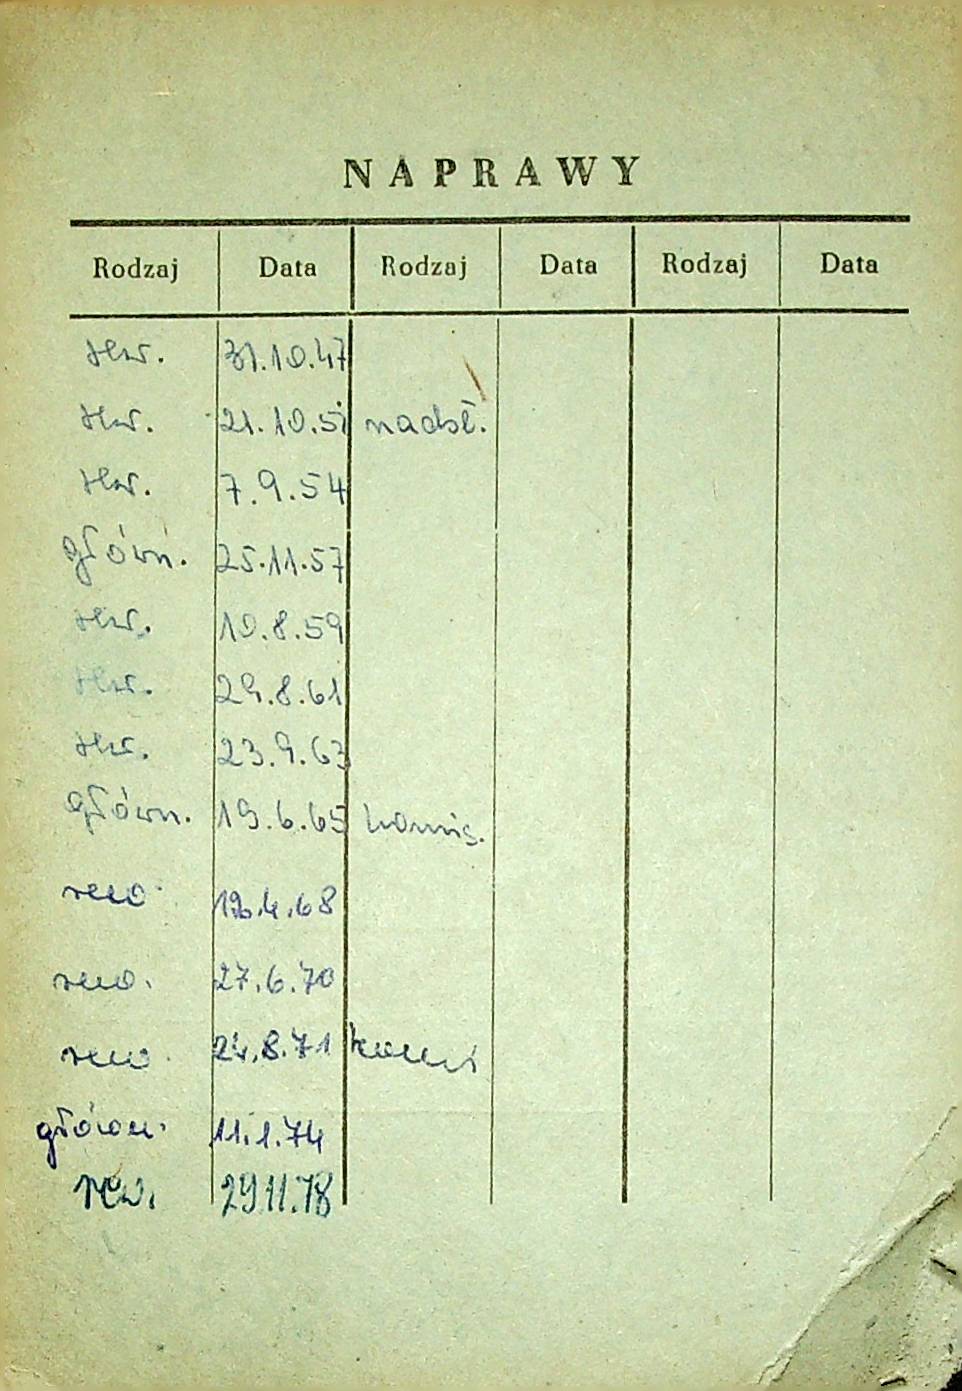 NAPRAWY
Rodzaj Data Rodzaj Data Rodzaj Data
31.10.47
21.10.51 nadst.
7.9.54
główn. 25.11.57
10.8.59
29.8.61
23.9.63
główn. 19.6.65 komis.
rew. .4.68
rew. 27.6.70
rew. 24.8.71 komis
główn. 11.1.74
rew. 29.11.78